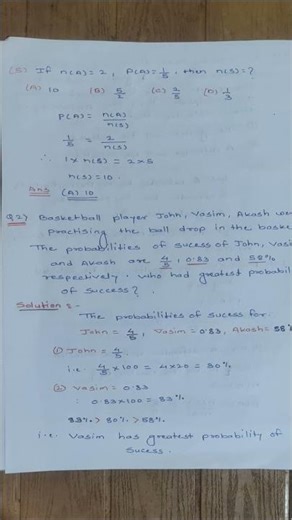 (5) If n(A)=2, P(A)=1/5, then n(S)=?
(A) 10 (B) 5/2 (C) 2/5 (D) 1/3
P(A) = n(A)/n(S)
1/5 = 2/n(S)
∴ 1 × n(S) = 2×5
n(S) = 10.
Ans (A) 10
Q.2) Basketball player John, Vasim, Akash we
practising the ball drop in the baske
The probabilities of sucess of John, Vas
and Akash are 4/5, 0.83 and 58%
respectively. Who had greatest probabil
of success?
Solution :-
The probabilities of sucess for
John = 4/5, Vasim = 0.83, Akash = 58%
(1) John = 4/5
i.e. 4/5 × 100 = 4×20 = 80%
(2) Vasim = 0.83
: 0.83×100 = 83%
83% > 80% > 58%.
i.e. Vasim has greatest probability of
Sucess.